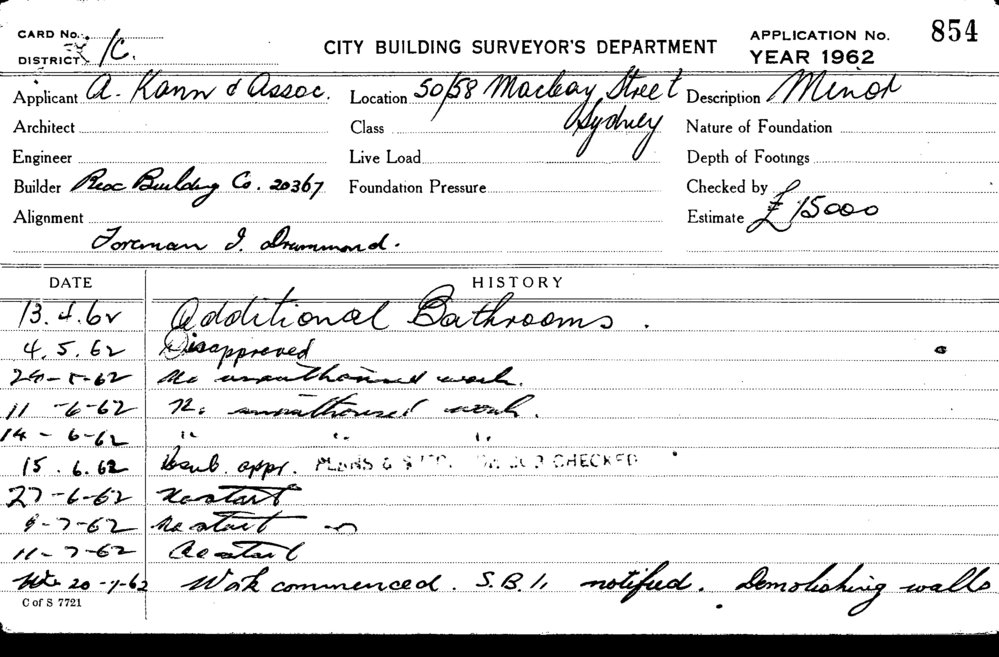 CARD No.
854
CITY BUILDING SURVEYOR'S DEPARTMENT
APPLICATION No.
DISTRICT /C.
YEAR 1962
Applicant A. Kann & Assoc. Location 50/58 Macleay Street Description Minor
Sydney
Architect Class Nature of Foundation
Engineer Live Load Depth of Footings
Builder Reoc Building Co. 20367 Foundation Pressure Checked by
Alignment Estimate £15000
Foreman J. Drummond.
DATE HISTORY
13.4.62 Additional Bathrooms.
4.5.62 Disapproved
-5-62 No unauthorised work.
11-6-62 No unauthorised work.
14-6-62 " " "
15.6.62 Resub. appr. PLANS & JOB CHECKED
27-6-62 No start
9-7-62 No start
11-7-62 No start
20-7-62 Work commenced. S.B.I. notified. Demolishing walls
C of S 7721